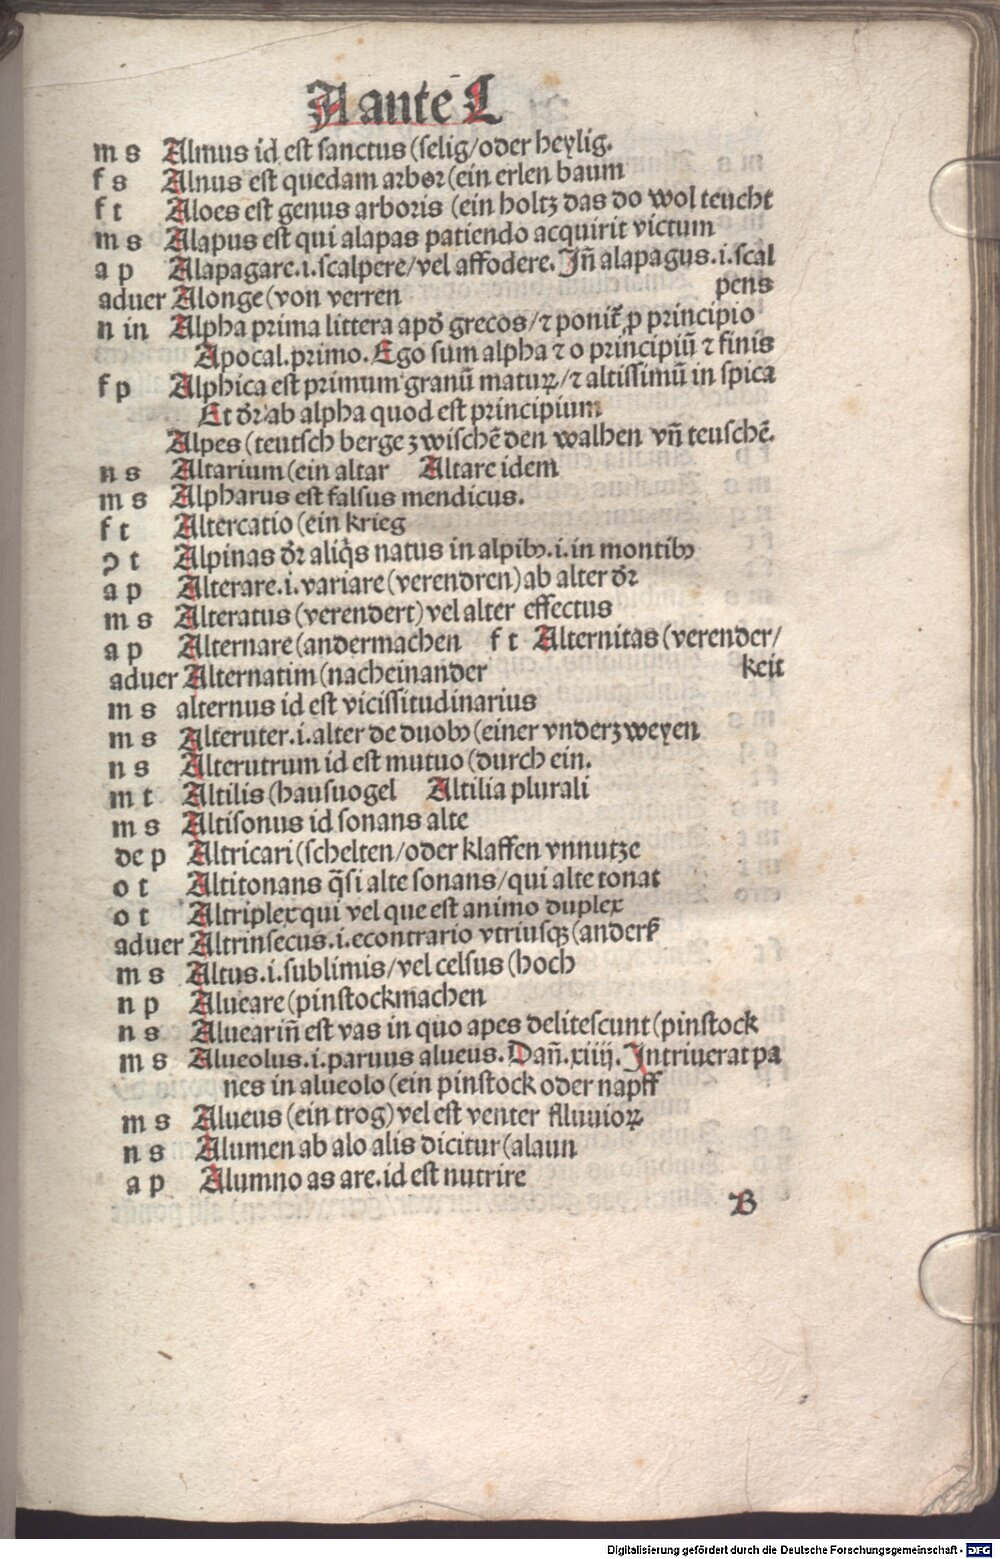 A ante L
m s Almus id est sanctus (selig/oder heylig.
f s Alnus est quedam arbor (ein erlen baum
f t Aloes est genus arboris (ein holtz das do wol teucht
m s Alapus est qui alapas patiendo acquirit victum
a p Alapagare.i.scalpere/vel affodere. Jñ alapagus.i.scal
pens
aduer Alonge (von verren
n in Alpha prima littera apđ grecos/⁊ ponit̃ ꝓ principio
Apocal.primo. Ego sum alpha ⁊ o principiũ ⁊ finis
f p Alphica est primum granũ maturꝝ/⁊ altissimũ in spica
Et dr̃ ab alpha quod est principium
Alpes (teutsch berge zwischẽ den walhen vñ teuschẽ.
n s Altarium (ein altar Altare idem
m s Alpharus est falsus mendicus.
f t Altercatio (ein krieg
ꝯ t Alpinas dr̃ aliq̃s natus in alpibꝫ.i.in montibꝫ
a p Alterare.i.variare (verendren) ab alter dr̃
m s Alteratus (verendert) vel alter effectus
a p Alternare (andermachen f t Alternitas (verender/
keit
aduer Alternatim (nacheinander
m s alternus id est vicissitudinarius
m s Alteruter.i.alter de duobꝫ (einer vnderzweyen
n s Alterutrum id est mutuo (durch ein.
m t Altilis (hausuogel Altilia plurali
m s Altisonus id sonans alte
de p Altricari (schelten/oder klaffen vnnutze
o t Altitonans q̃si alte sonans/qui alte tonat
o t Altriplex qui vel que est animo duplex
aduer Altrinsecus.i.econtrario vtriusqꝫ (anderß
m s Altus.i.sublimis/vel celsus (hoch
n p Alueare (pinstockmachen
n s Alueariñ est vas in quo apes delitescunt (pinstock
m s Alueolus.i.paruus alueus. Dañ.xiiij. Intriuerat pa
nes in alueolo (ein pinstock oder napff
m s Alueus (ein trog) vel est venter fluuiorꝝ
n s Alumen ab alo alis dicitur (alaun
a p Alumno as are.id est nutrire
B
Digitalisierung gefördert durch die Deutsche Forschungsgemeinschaft - DFG